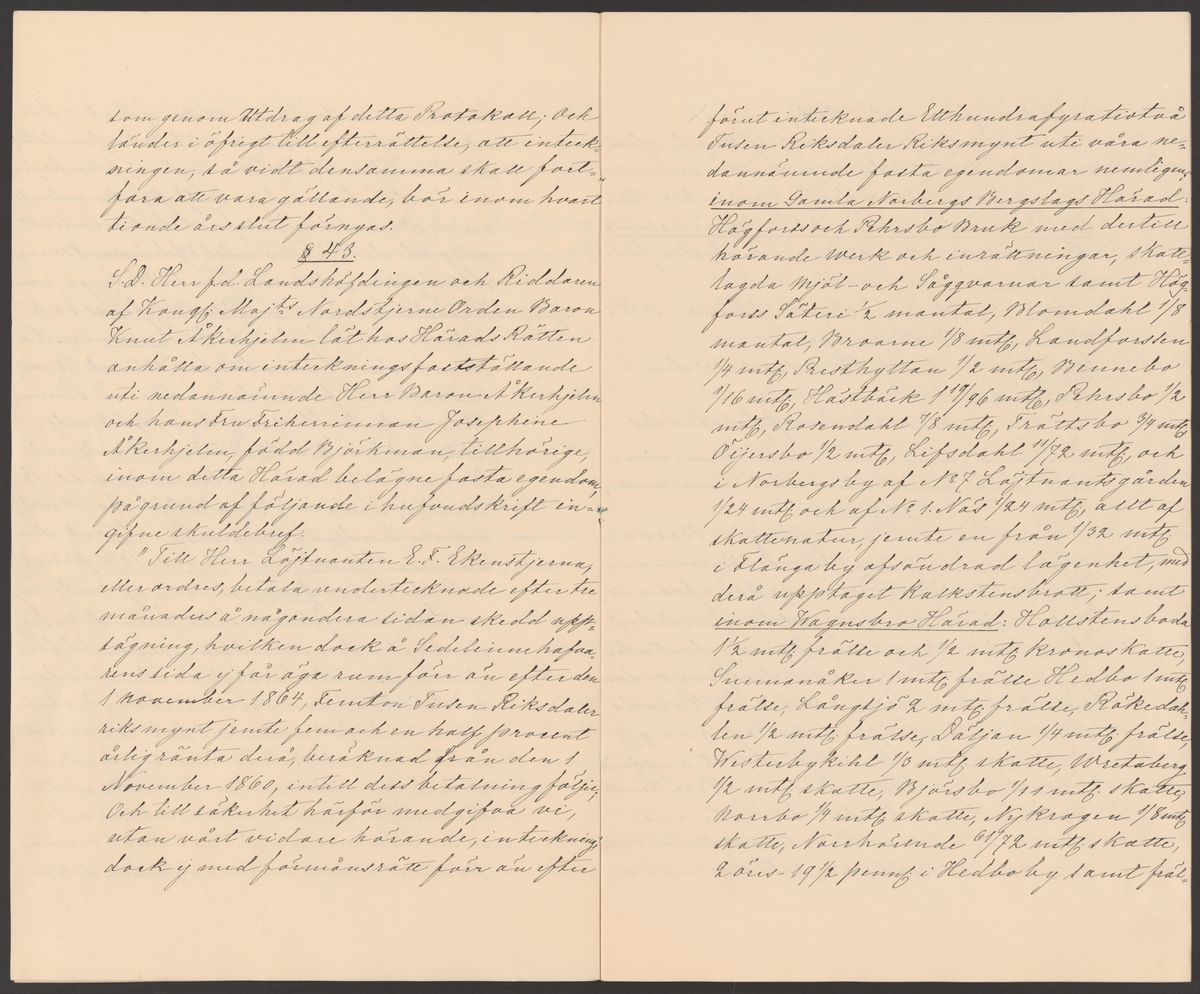 som genom Utdrag af detta Protokoll; Och
länder i öfrigt till efterrättelse, att inteck-
ningen, så vidt densamma skall fort-
fara att vara gällande, bör inom hvart
tionde års slut förnyas.
§ 43.
S. D. Herr fd Landshöfdingen och Riddaren
af Kongl: Maj:ts Nordstjerne Orden Baron
Knut Åkerhjelm lät hos Härads Rätten
anhålla om inteckningsfastställande
uti nedannämnde Herr Baron Åkerhjelm
och hans Fru Friherrinnan Josephine
Åkerhjelm, född Björkman, tillhörige,
inom detta Härad belägne fasta egendom,
på grund af följande i hufvudskrift in-
gifne skuldebref:
"Till Herr Löjtnanten E. F. Ekenstjerna,
eller ordres, betala undertecknade efter tre
månaders å någondera sidan skedd upp-
sägning, hvilken dock å Sedelinnehafva-
rens sida ej får äga rum förr än efter den
1 november 1864, Femton Tusen Riksdaler
riksmynt jemte fem och en half procent
årlig ränta derå, beräknad från den 1
November 1860, intill dess betalning följer;
Och till säkerhet härför medgifva vi,
utan vårt vidare hörande, inteckning,
dock ej med förmånsrätt förr än efter
förut intecknade Etthundrafyratiotvå
Tusen Riksdaler Riksmynt uti våra ne-
dannämnde fasta egendomar nemligen:
inom Gamla Norbergs Bergslags Härad:
Högforss och Rhrsbo Bruk med dertill
hörande Werk och inrättningar, skatt-
lagda Mjöl- och Sågqvarnar samt Hög-
forss Säteri 1/2 mantal, Blomdahl 1/8
mantal, Broarne 1/8 mtl, Landforssen
1/4 mtl, Resthyttan 1/2 mtl, Bennebo
9/16 mtl, Hästbäck 1 19/96 mtl, Rhrsbo 1/2
mtl, Rosendahl 7/8 mtl, Trättsbo 3/4 mtl,
Öijersbo 1/2 mtl, Lifsdahl 11/72 mtl, och
i Norbergsby af No 7 Löjtnantsgården
1/24 mtl och af No 1. Näs 1/24 mtl, allt af
skattenatur, jemte en från 1/32 mtl
i Flänga by afsöndrad lägenhet, med
derå upptaget Kalkstensbrott; samt
inom Wagnsbro Härad: Hallstensboda
1 1/2 mtl frälse och 1/2 mtl kronoskatte,
Sunnanåker 1 mtl frälse Hedbo 1 mtl
frälse, Långsjö 2 mtl frälse, Räkedah-
len 1/2 mtl frälse, Däljan 1/4 mtl frälse,
Westerbykihl 1/3 mtl skatte, Wretaberg
1/2 mtl skatte, Björsbo 1/11 mtl skatte,
Norrbo 1/9 mtl skatte, Nykrogen 1/8 mtl
skatte, Norrhörende 61/72 mtl skatte,
2 öres 19 1/2 penn: i Hedbo by samt fräl-